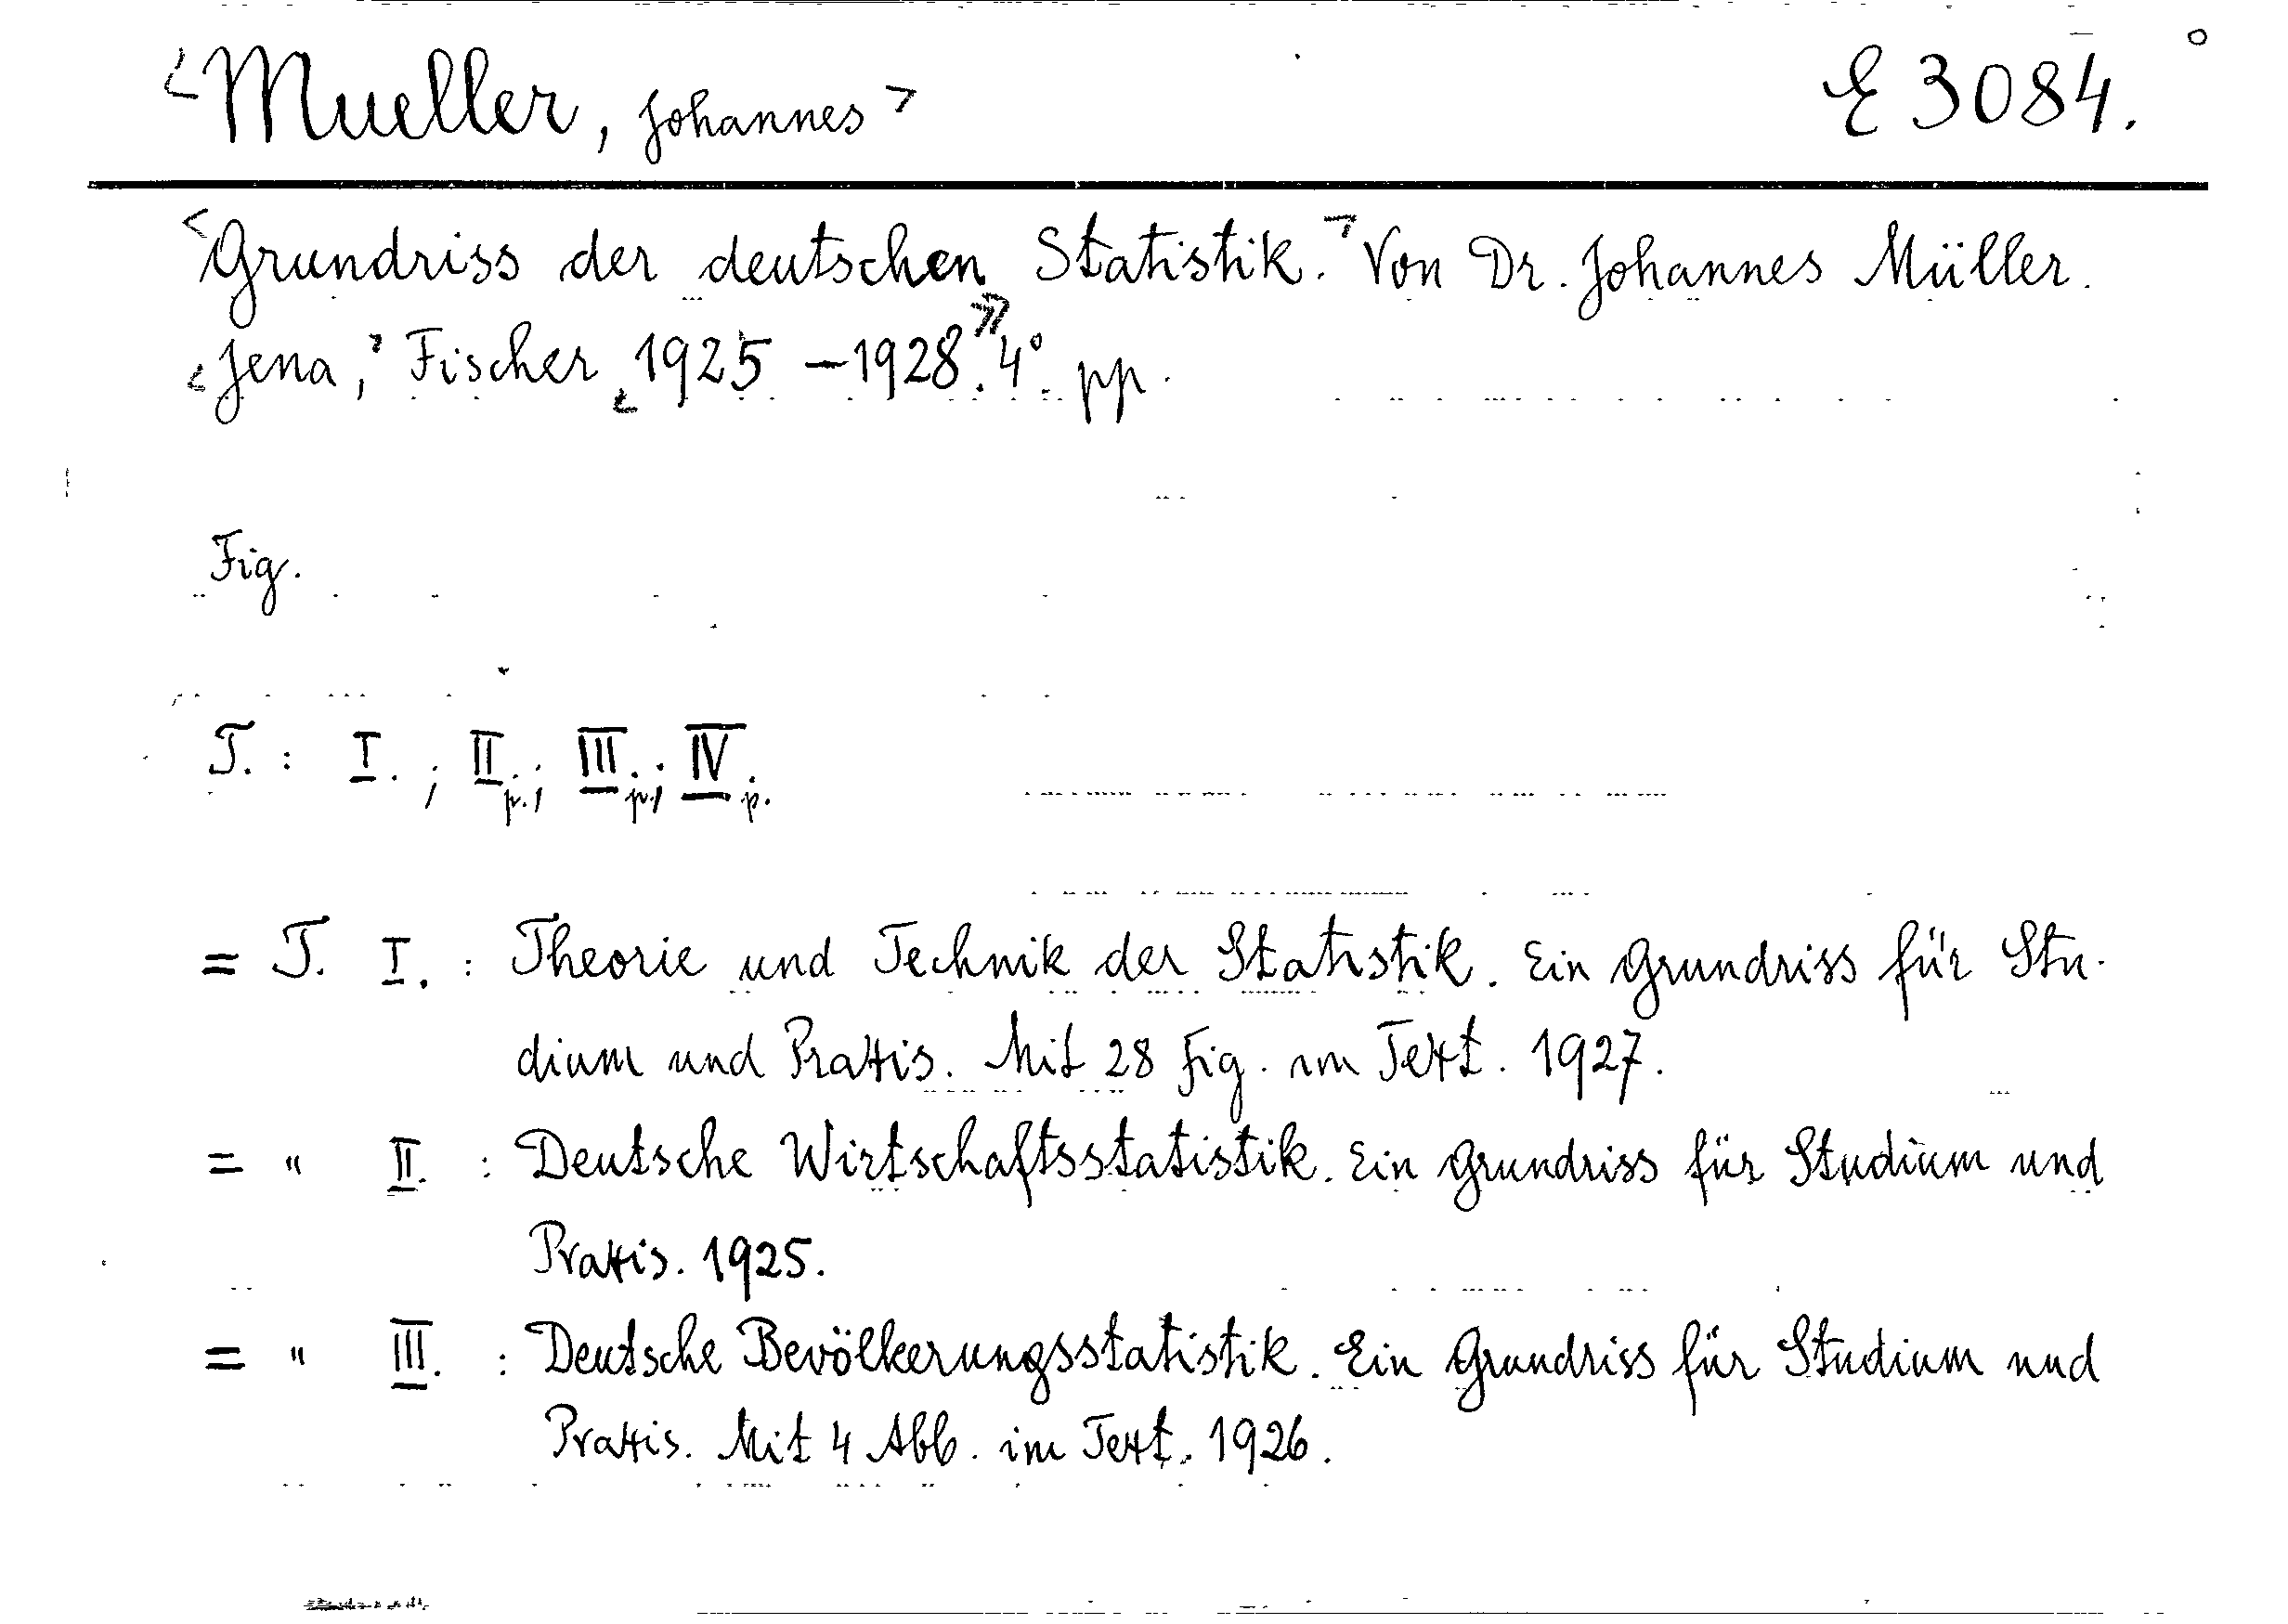 <Mueller, Johannes> E 3084.
<Grundriss der deutschen Statistik.> Von Dr. Johannes Müller.
<Jena,> Fischer <1925 – 1928.>> 4°. pp.
Fig.
T. : I. ; II. ; III. ; IV.
p. ; p. ; p.
= T. I. : Theorie und Technik der Statistik. Ein Grundriss für Stu-
dium und Praxis. Mit 28 Fig. im Text. 1927.
= " II. : Deutsche Wirtschaftsstatistik. Ein Grundriss für Studium und
Praxis. 1925.
= " III. : Deutsche Bevölkerungsstatistik. Ein Grundriss für Studium und
Praxis. Mit 4 Abb. im Text. 1926.